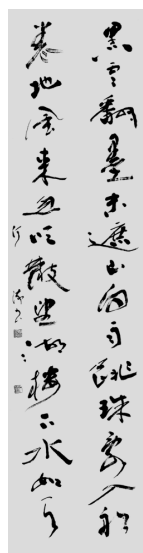 黑雲翻墨未遮山白雨跳珠亂入船
卷地風來忽吹散望湖樓下水如天